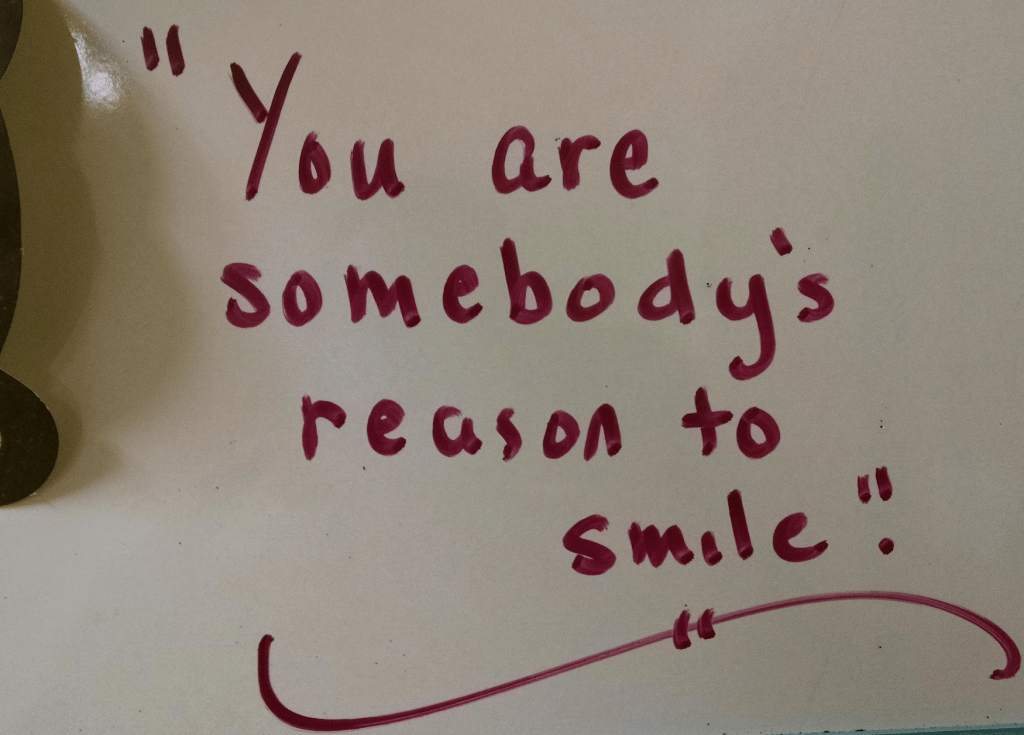 "You are
somebody's
reason to
smile".